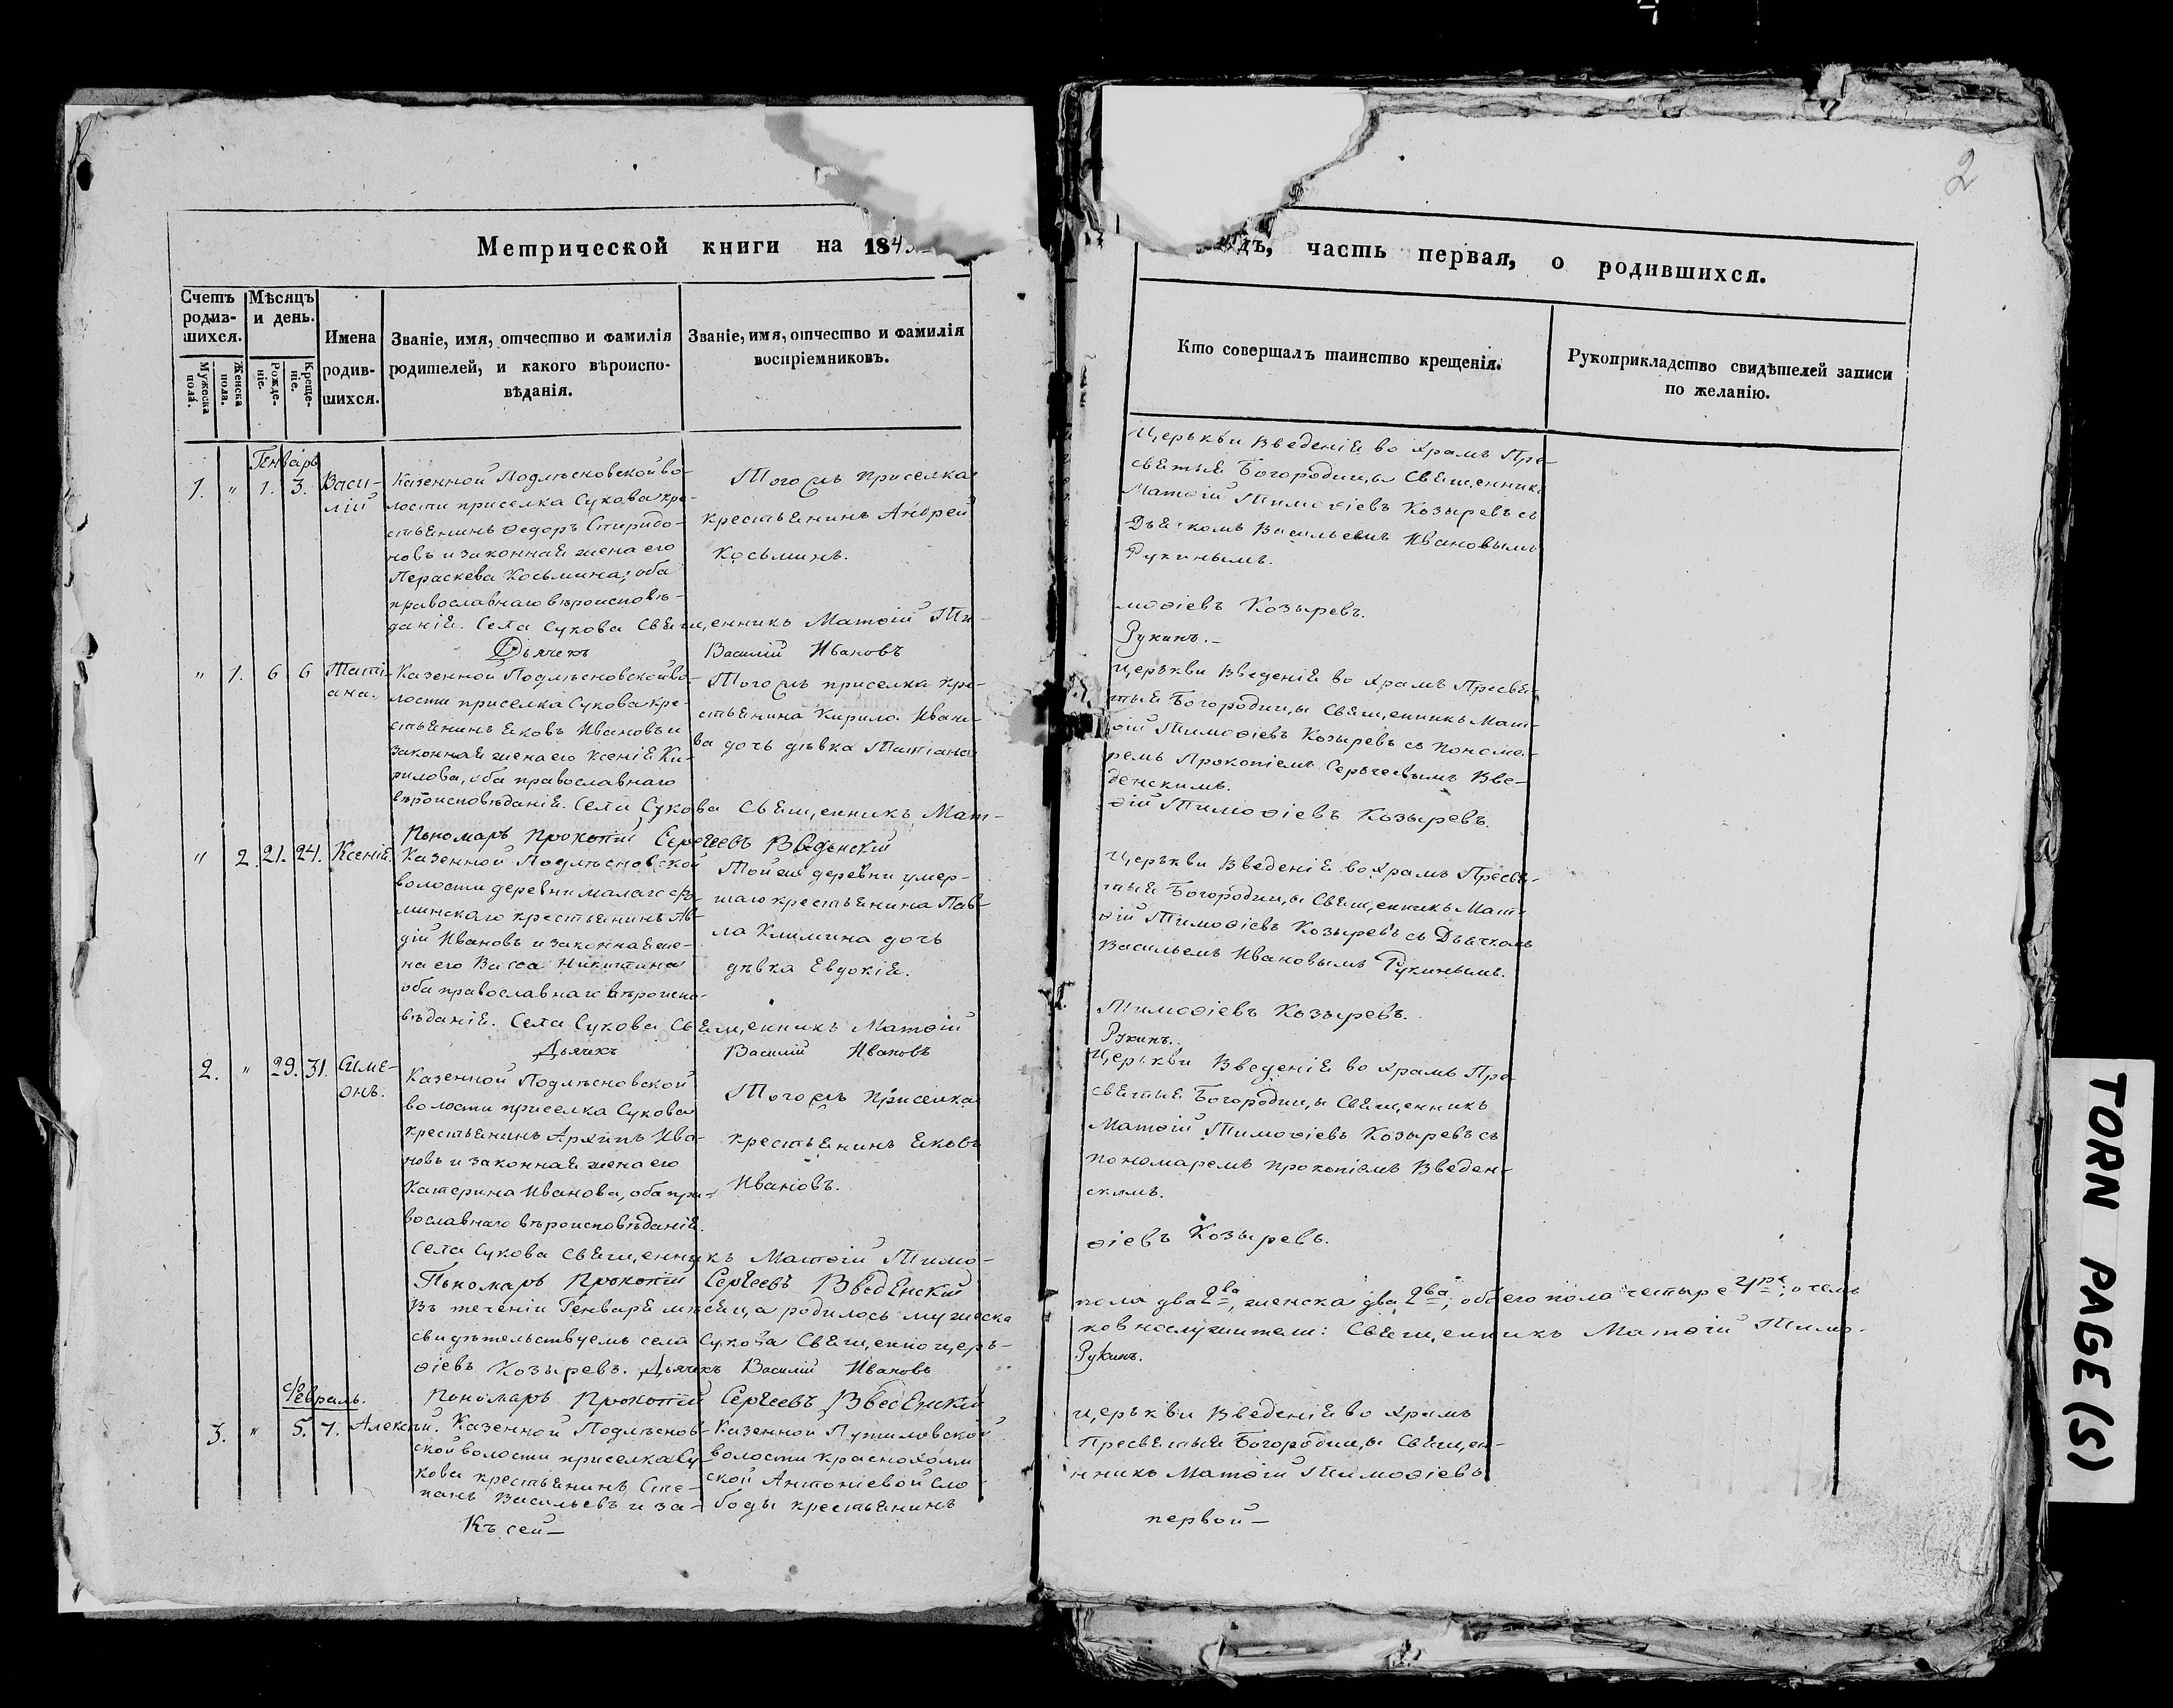 2
Метрической книги на 184
дъ, часть первая, о родившихся.
Счетъ родив-шихся.
Мужеска пола.
Женска пола.
Мѣсяцъ и день.
Рожде-ніе.
Креще-ніе.
Имена
родив-
шихся.
Званіе, имя, отчество и фамилія
родителей, и какого вѣроиспо-
вѣданія.
Званіе, имя, отчество и фамилія
воспріемниковъ.
Кто совершалъ таинство крещенія.
Рукоприкладство свидѣтелей записи
по желанію.
Генварь
1. " 1. 3. Васи-
лій
Казенной Подлѣсновской во-
лости приселка Сукова кре-
стьянинъ Ѳедоръ Спиридо-
новъ и законная жена его
Параскева Косьмина; оба
православнаго вѣроисповѣ-
данія. Села Сукова Священникъ Матѳій Ти-
Дьячекъ Василій Ивановъ
Того жъ приселка
крестьянинъ Андрей
Косьминъ.
Церькви Введенія во храмъ Пре-
святыя Богородицы Священникъ
Матѳій Тимоѳіевъ Козыревъ съ
Дьячкомъ Васильемъ Ивановымъ
Рукинымъ.
моѳіевъ Козыревъ.
Рукинъ.-
" 1. 6 6 Таті-
ана.
Казенной Подлѣсновской во-
лости приселка Сукова кре-
стьянинъ Яковъ Ивановъ и
законная жена его Ксенія Ки-
рилова, оба православнаго
вѣроисповѣданія. Села Сукова Священникъ Мат-
Пономарь Прокопій Сергеевъ Введенскій
Того жъ приселка кре-
стьянина Кирила Ивано-
ва дочь дѣвка Татіана
Церькви Введенія во храмъ Пресвя-
тыя Богородицы Священникъ Мат-
ѳій Тимоѳіевъ Козыревъ съ понома-
ремъ Прокопіемъ Сергеевымъ Вве-
денскимъ.
ѳій Тимоѳіевъ Козыревъ.
" 2. 21. 24. Ксенія
Казенной Подлѣсновской
волости деревни Малаго
минскаго крестьянинъ Ав-
дій Ивановъ и законная же-
на его Васса Никитина
оба православнаго вѣроиспо-
вѣданія. Села Сукова Священникъ Матѳій
Дьячекъ Василій Ивановъ
Той же деревни умер-
шаго крестьянина Пав-
ла Климина дочь
дѣвка Евдокія.
Церькви Введенія во храмъ Пресвя-
тыя Богородицы Священникъ Мат-
ѳій Тимоѳіевъ Козыревъ съ Дьячкомъ
Васильемъ Ивановымъ Рукинымъ.
Тимоѳіевъ Козыревъ.
Рукинъ.
2. " 29. 31. Симе-
онъ.
Казенной Подлѣсновской
волости приселка Сукова
крестьянинъ Архипъ Ива-
новъ и законная жена его
Катерина Иванова, оба пра-
вославнаго вѣроисповѣданія.
Села Сукова Священникъ Матѳій Тимо-
Пономарь Прокопій Сергеевъ Введенскій
Того жъ приселка
крестьянинъ Яковъ
Ивановъ.
Церькви Введенія во храмъ Пре-
святыя Богородицы Священникъ
Матѳій Тимоѳіевъ Козыревъ съ
пономаремъ Прокопіемъ Введен-
скимъ.
ѳіевъ Козыревъ.
Въ теченіи Генваря мѣсяца родилось мужеска
пола два 2ва, женска два 2ва; обоего пола четыре 4ре; о чемъ
свидѣтельствуемъ села Сукова Священноцерь-
ковнослужители: Священникъ Матѳій Тимо-
ѳіевъ Козыревъ. Дьячекъ Василій Ивановъ
Рукинъ.
Пономарь Прокопій Сергеевъ Введенскій
Февраль.
3. " 5. 7. Алексѣй.
Казенной Подлѣснов-
ской волости приселка Су-
кова крестьянинъ Сте-
панъ Васильевъ и за-
Казенной Путиловской
волости Краснохолм
ской Антоніевой сло
боды крестьянинъ
Церькви Введенія во храмъ
Пресвятыя Богородицы Священ-
нникъ Матѳій Тимоѳіевъ
Къ сей-
первой-
TORN PAGE(S)